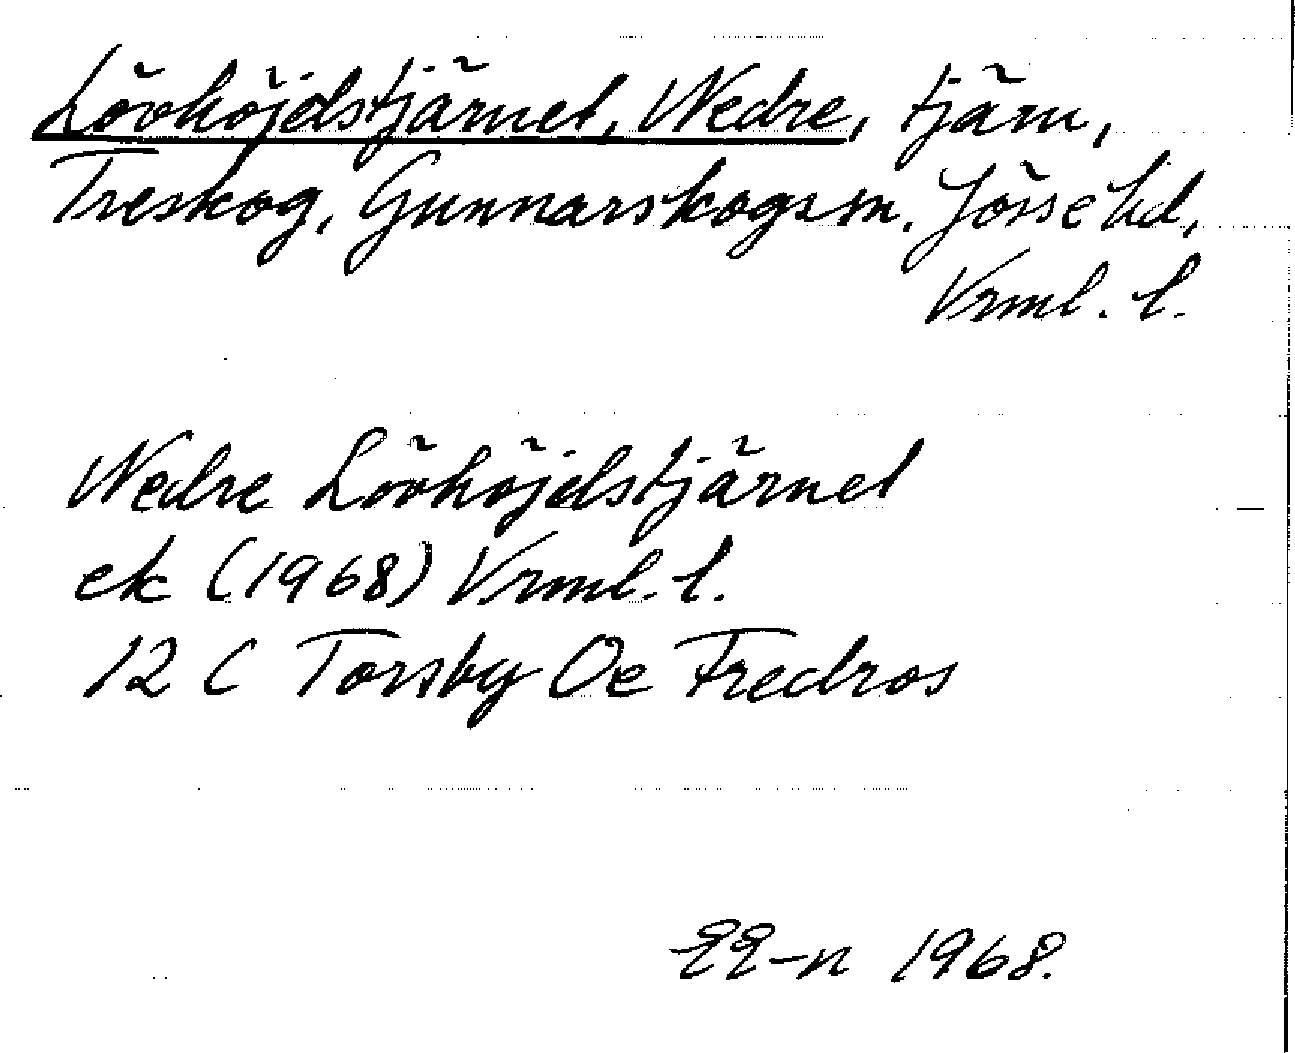 Lövhöjdstjärnet, Nedre, tjärn,
Treskog, Gunnarskogs sn. Jösse hd,
Vrml. l.
Nedre Lövhöjdstjärnet
ek (1968) Vrml. l.
12 C Torsby Oe Fredros
EE-n 1968.